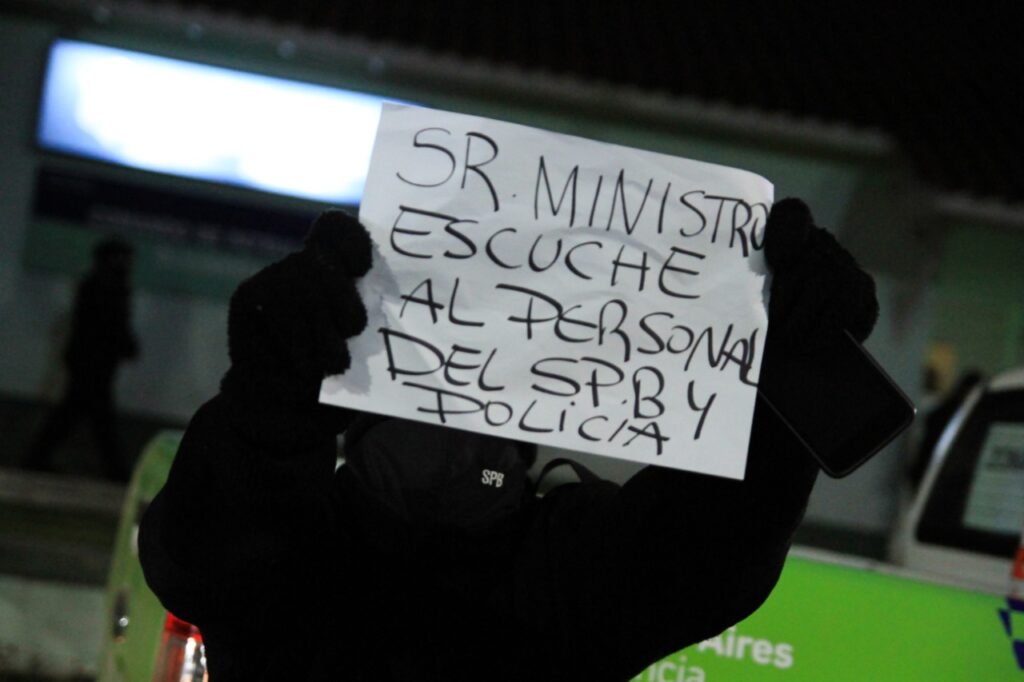 SR. MINISTRO
ESCUCHE
AL PERSONAL
DEL S.P.B Y
POLICIA
SPB
Aires
ncia